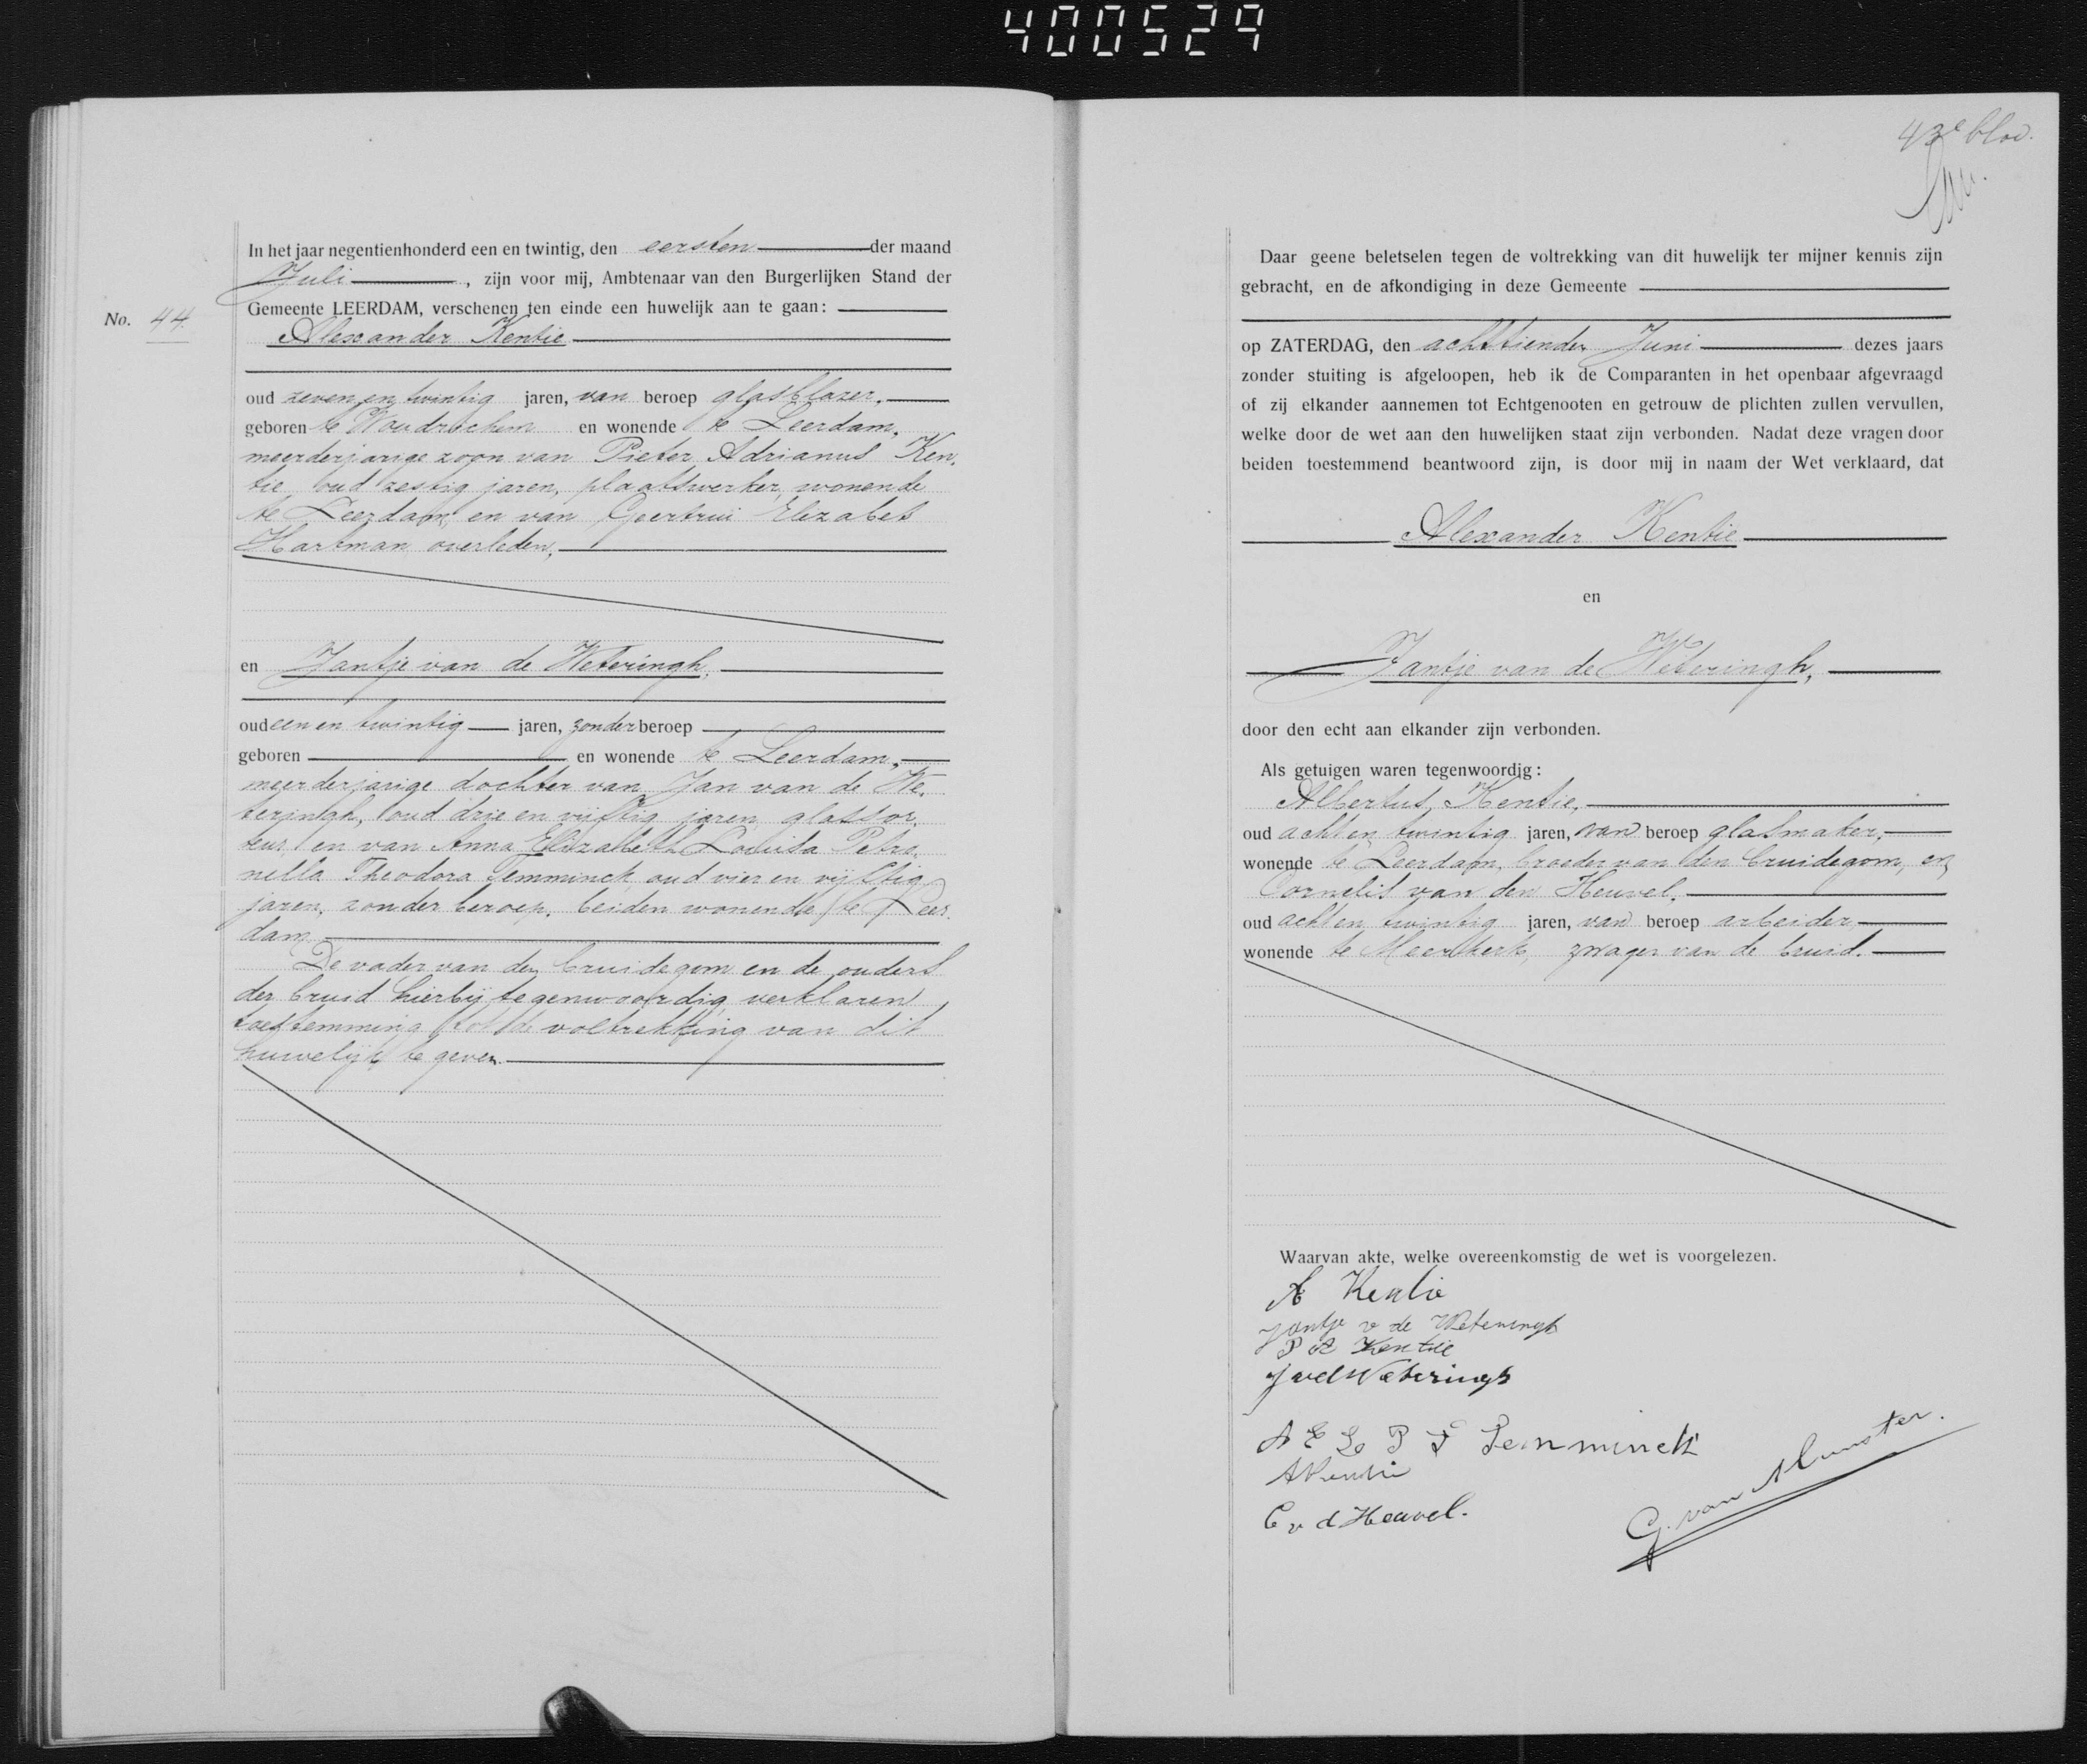 400529
In het jaar negentienhonderd een en twintig, den eersten der maand
Juli, zijn voor mij, Ambtenaar van den Burgerlijken Stand der
Gemeente LEERDAM, verschenen ten einde een huwelijk aan te gaan:
No. 44
Alexander Kentie
oud zeven en twintig jaren, van beroep glasblazer,
geboren te Woudrichem en wonende te Leerdam,
meerderjarige zoon van Pieter Adrianus Ken-
tie oud zestig jaren, plaatswerker, wonende
te Leerdam, en van Geertrui Elizabet
Hartman overleden,
en Jantje van de Weteringh,
oud een en twintig jaren, zonder beroep
geboren en wonende te Leerdam,
meerderjarige dochter van Jan van de We-
teringh, oud drie en vijftig jaren glassor-
teur, en van Anna Elizabeth Louisa Petro-
nella Theodora Temminck, oud vier en vijftig
jaren, zonder beroep, beiden wonende te Leer-
dam
De vader van den bruidegom en de ouders
der bruid hierbij tegenwoordig, verklaren
toestemming tot de voltrekking van dit
huwelijk te geven.
43e blad.
Daar geene beletselen tegen de voltrekking van dit huwelijk ter mijner kennis zijn
gebracht, en de afkondiging in deze Gemeente
op ZATERDAG, den achttienden Juni dezes jaars
zonder stuiting is afgeloopen, heb ik de Comparanten in het openbaar afgevraagd
of zij elkander aannemen tot Echtgenooten en getrouw de plichten zullen vervullen,
welke door de wet aan den huwelijken staat zijn verbonden. Nadat deze vragen door
beiden toestemmend beantwoord zijn, is door mij in naam der Wet verklaard, dat
Alexander Kentie
en
Jantje van de Weteringh,
door den echt aan elkander zijn verbonden.
Als getuigen waren tegenwoordig:
Albertus Kentie,
oud acht en twintig jaren, van beroep glasmaker,
wonende te Leerdam, broeder van den bruidegom, en
Cornelis van den Heuvel,
oud acht en twintig jaren, van beroep arbeider
wonende te Meerkerk, zwager van de bruid.
Waarvan akte, welke overeenkomstig de wet is voorgelezen.
A Kentie
Jantje v de Weteringh
P A Kentie
J vd Weteringh
A E L P T Temminck
A Kentie
C v d Heuvel.
G. van Munster.